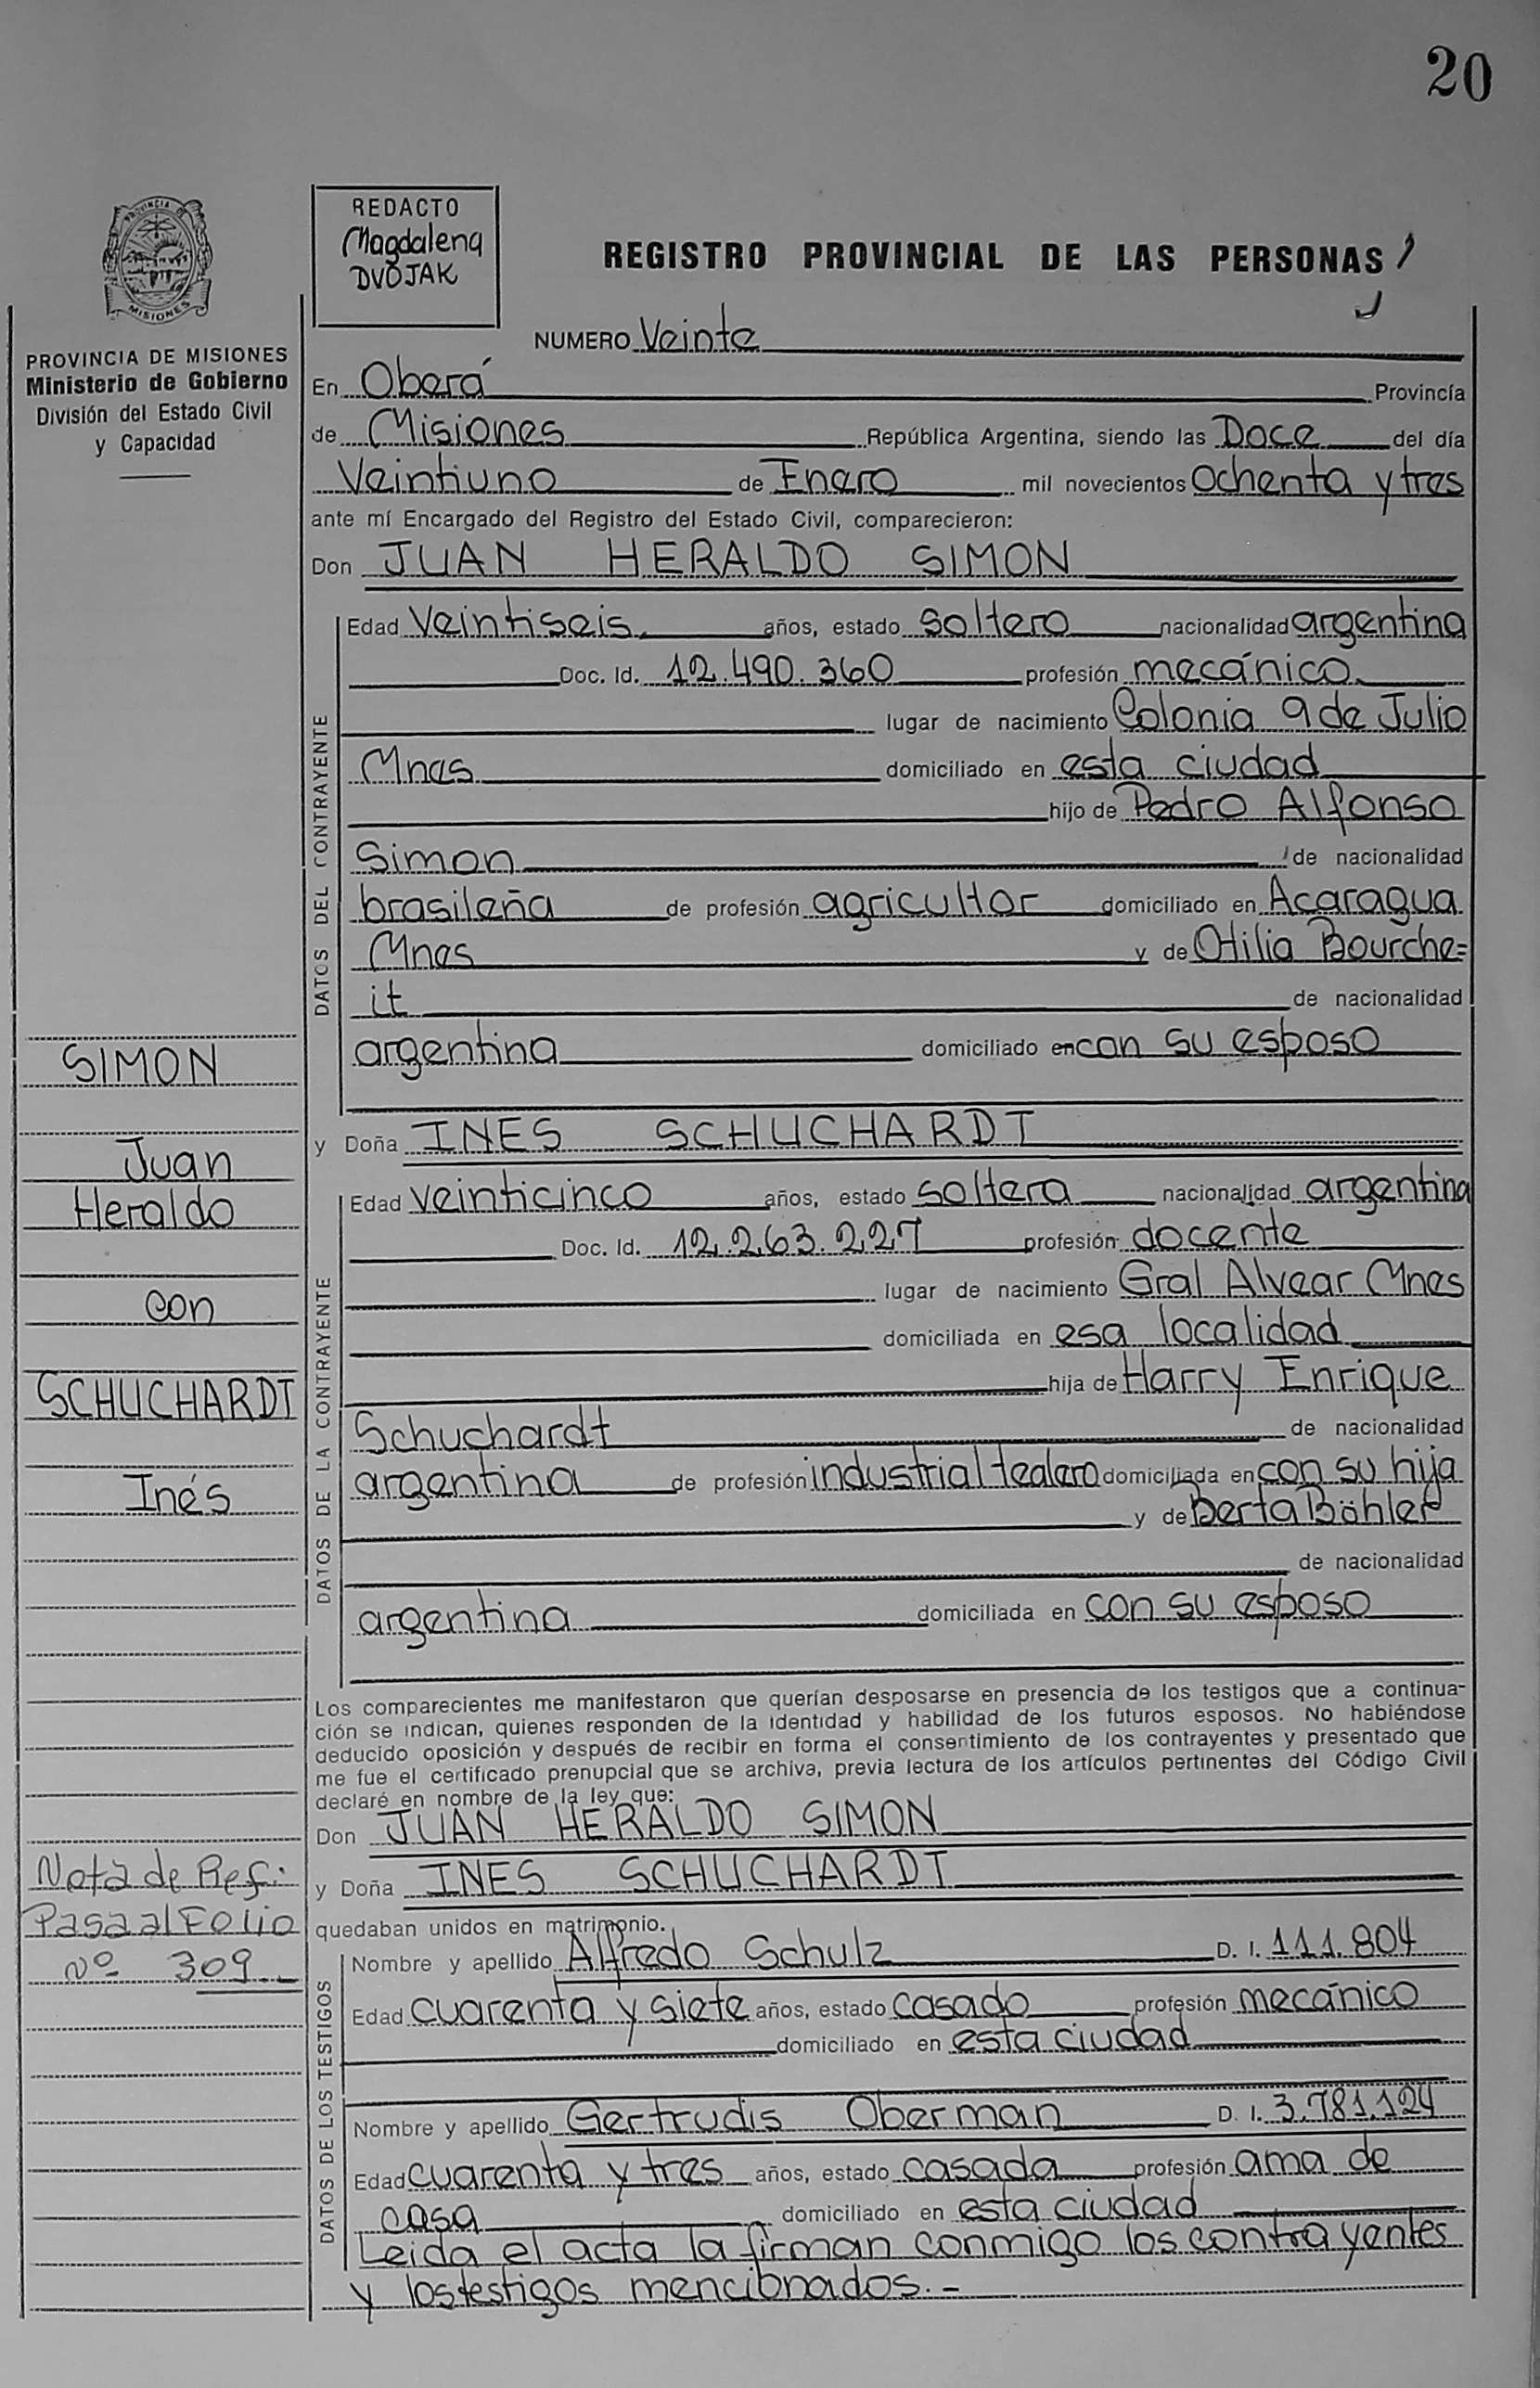 20
PROVINCIA DE
MISIONES
REDACTO
Magdalena
DVOJAK
REGISTRO PROVINCIAL DE LAS PERSONAS
PROVINCIA DE MISIONES
Ministerio de Gobierno
División del Estado Civil
y Capacidad
NUMERO Veinte
En Oberá Provincia
de Misiones República Argentina, siendo las Doce del día
Veintiuno de Enero mil novecientos ochenta y tres
ante mí Encargado del Registro del Estado Civil, comparecieron:
Don JUAN HERALDO SIMON
DATOS DEL CONTRAYENTE
Edad Veintiseis años, estado soltero nacionalidad argentina
Doc. Id. 12.490.360 profesión mecánico
lugar de nacimiento Colonia 9 de Julio
Mnes domiciliado en esta ciudad
hijo de Pedro Alfonso
Simon de nacionalidad
brasileña de profesión agricultor domiciliado en Acaragua
Mnes y de Otilia Bourche=
it de nacionalidad
argentina domiciliado en con su esposo
y Doña INES SCHUCHARDT
DATOS DE LA CONTRAYENTE
Edad veinticinco años, estado soltera nacionalidad argentina
Doc. Id. 12.263.227 profesión docente
lugar de nacimiento Gral Alvear Mnes
domiciliada en esa localidad
hija de Harry Enrique
Schuchardt de nacionalidad
argentina de profesión industrial tealero domiciliada en con su hija
y de Berta Böhler
de nacionalidad
argentina domiciliada en con su esposo
Los comparecientes me manifestaron que querían desposarse en presencia de los testigos que a continua-
ción se indican, quienes responden de la identidad y habilidad de los futuros esposos. No habiéndose
deducido oposición y después de recibir en forma el consentimiento de los contrayentes y presentado que
me fue el certificado prenupcial que se archiva, previa lectura de los artículos pertinentes del Código Civil
declaré en nombre de la ley que:
Don JUAN HERALDO SIMON
y Doña INES SCHUCHARDT
quedaban unidos en matrimonio.
DATOS DE LOS TESTIGOS
Nombre y apellido Alfredo Schulz D. I. 111.804
Edad cuarenta y siete años, estado casado profesión mecánico
domiciliado en esta ciudad
Nombre y apellido Gertrudis Oberman D. I. 3.781.124
Edad cuarenta y tres años, estado casada profesión ama de
casa domiciliado en esta ciudad
Leida el acta la firman conmigo los contrayentes
y los testigos mencionados.-
SIMON
Juan
Heraldo
con
SCHUCHARDT
Inés
Nota de Ref:
Pasa al Folio
Nº 309